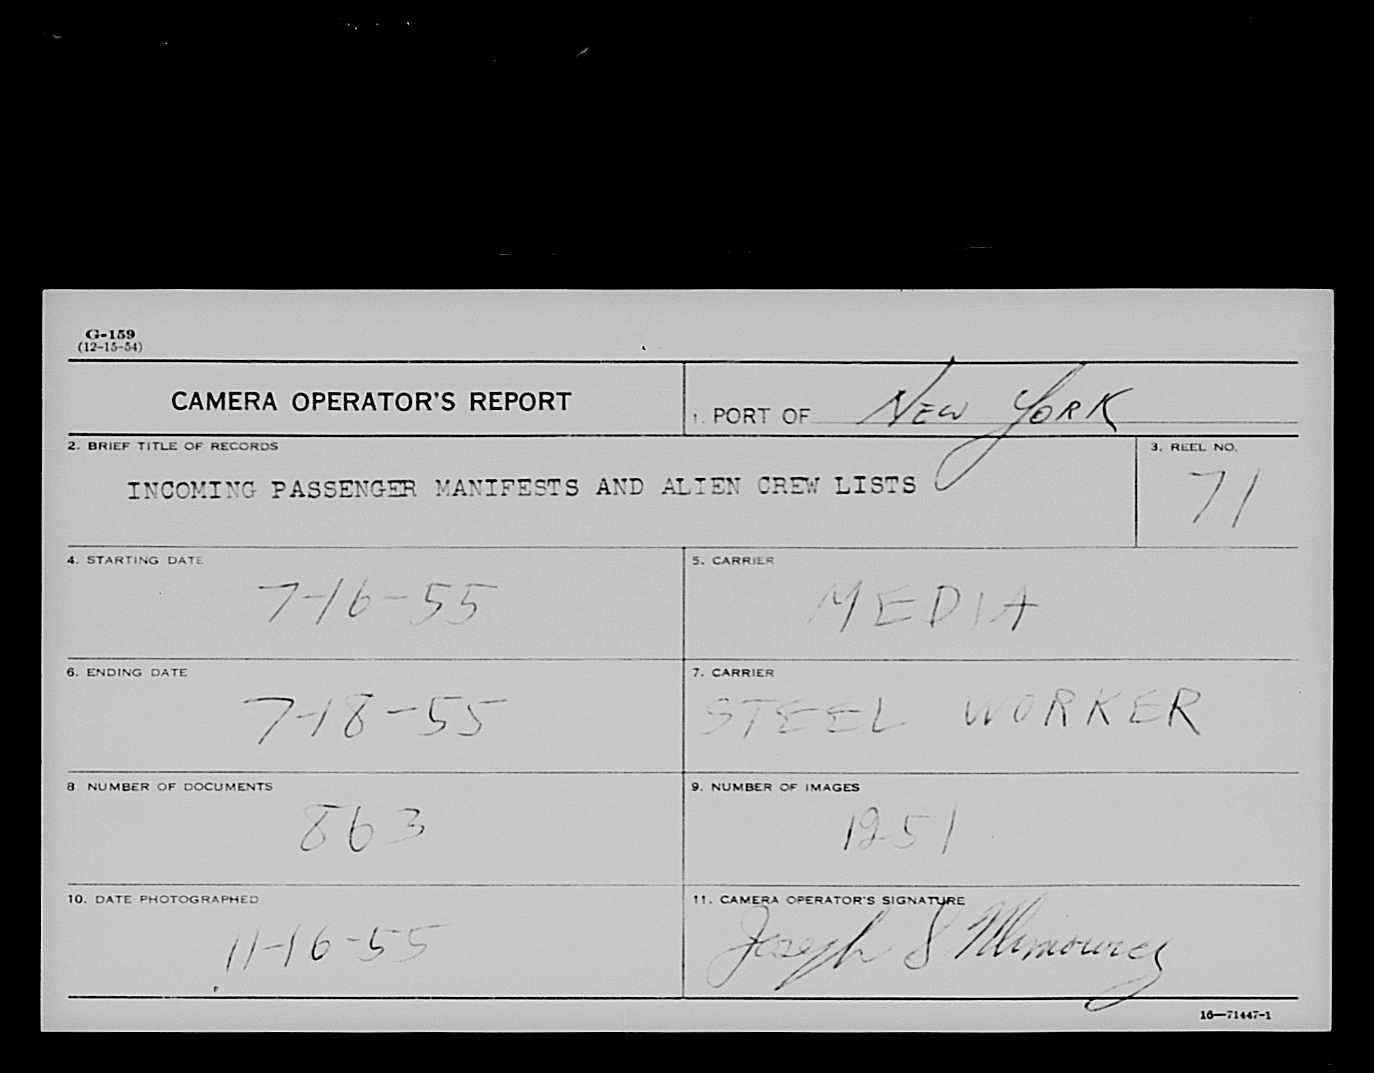 G-159
(12-15-54)
CAMERA OPERATOR'S REPORT
1. PORT OF NEW YORK
2. BRIEF TITLE OF RECORDS
INCOMING PASSENGER MANIFESTS AND ALIEN CREW LISTS
3. REEL NO.
71
4. STARTING DATE
7-16-55
5. CARRIER
MEDIA
6. ENDING DATE
7-18-55
7. CARRIER
STEEL WORKER
8 NUMBER OF DOCUMENTS
863
9. NUMBER OF IMAGES
1251
10. DATE PHOTOGRAPHED
11-16-55
11. CAMERA OPERATOR'S SIGNATURE
Joseph S
16—71447-1